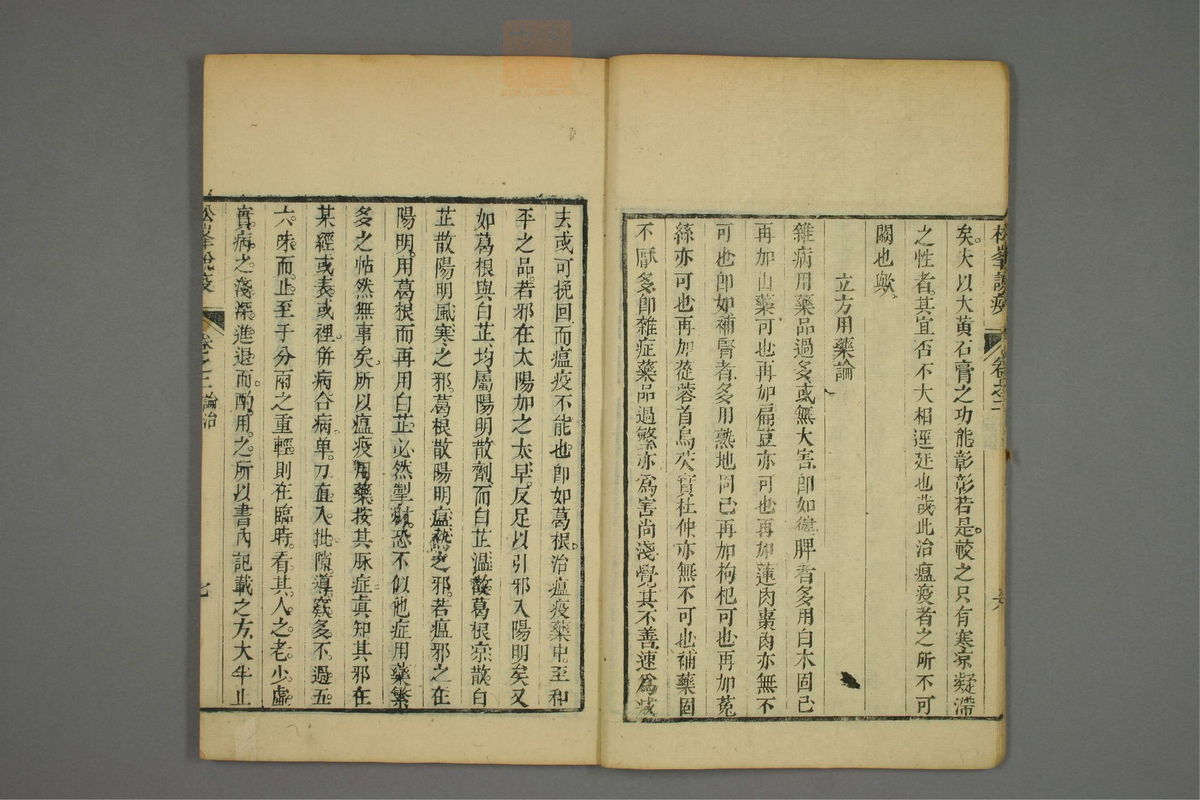 松峯說疫
卷之二
矣大以大黃石膏之功能彰彰若是較之只有寒凉凝滯
之性者其宜否不大相逕廷也哉此治瘟疫者之所不可
闕也歟
立方用藥論
雜病用藥品過多或無大害即如健脾者多用白木固已
再加山藥可也再加扁荳亦可也再加蓮肉棗肉亦無不
可也即如補腎者多用熟地固已再加枸杞可也再加菟
絲亦可也再加蓯蓉首烏芡實杜仲亦無不可也補藥固
不厭多即雜症藥品過繁亦爲害尚淺覺其不善速爲
去或可挽回而瘟疫不能也即如葛根治瘟疫藥中至和
平之品若邪在太陽加之太早反足以引邪入陽明矣又
如葛根與白芷均屬陽明散劑而白芷溫散葛根凉散白
芷散陽明風寒之邪葛根散陽明瘟熱之邪若瘟邪之在
陽明用葛根而再用白芷必然掣肘恐不似他症用藥繁
多之帖然無事矣所以瘟疫用藥按其脈症真知其邪在
某經或表或裡併病合病单刀直入批隙導窾多不過五
六味而止至于分兩之重輕則在臨時看其人之老少虛
實病之淺深進退而酌用之所以書內記載之方大半止
松峯說疫
卷之二
論治
七